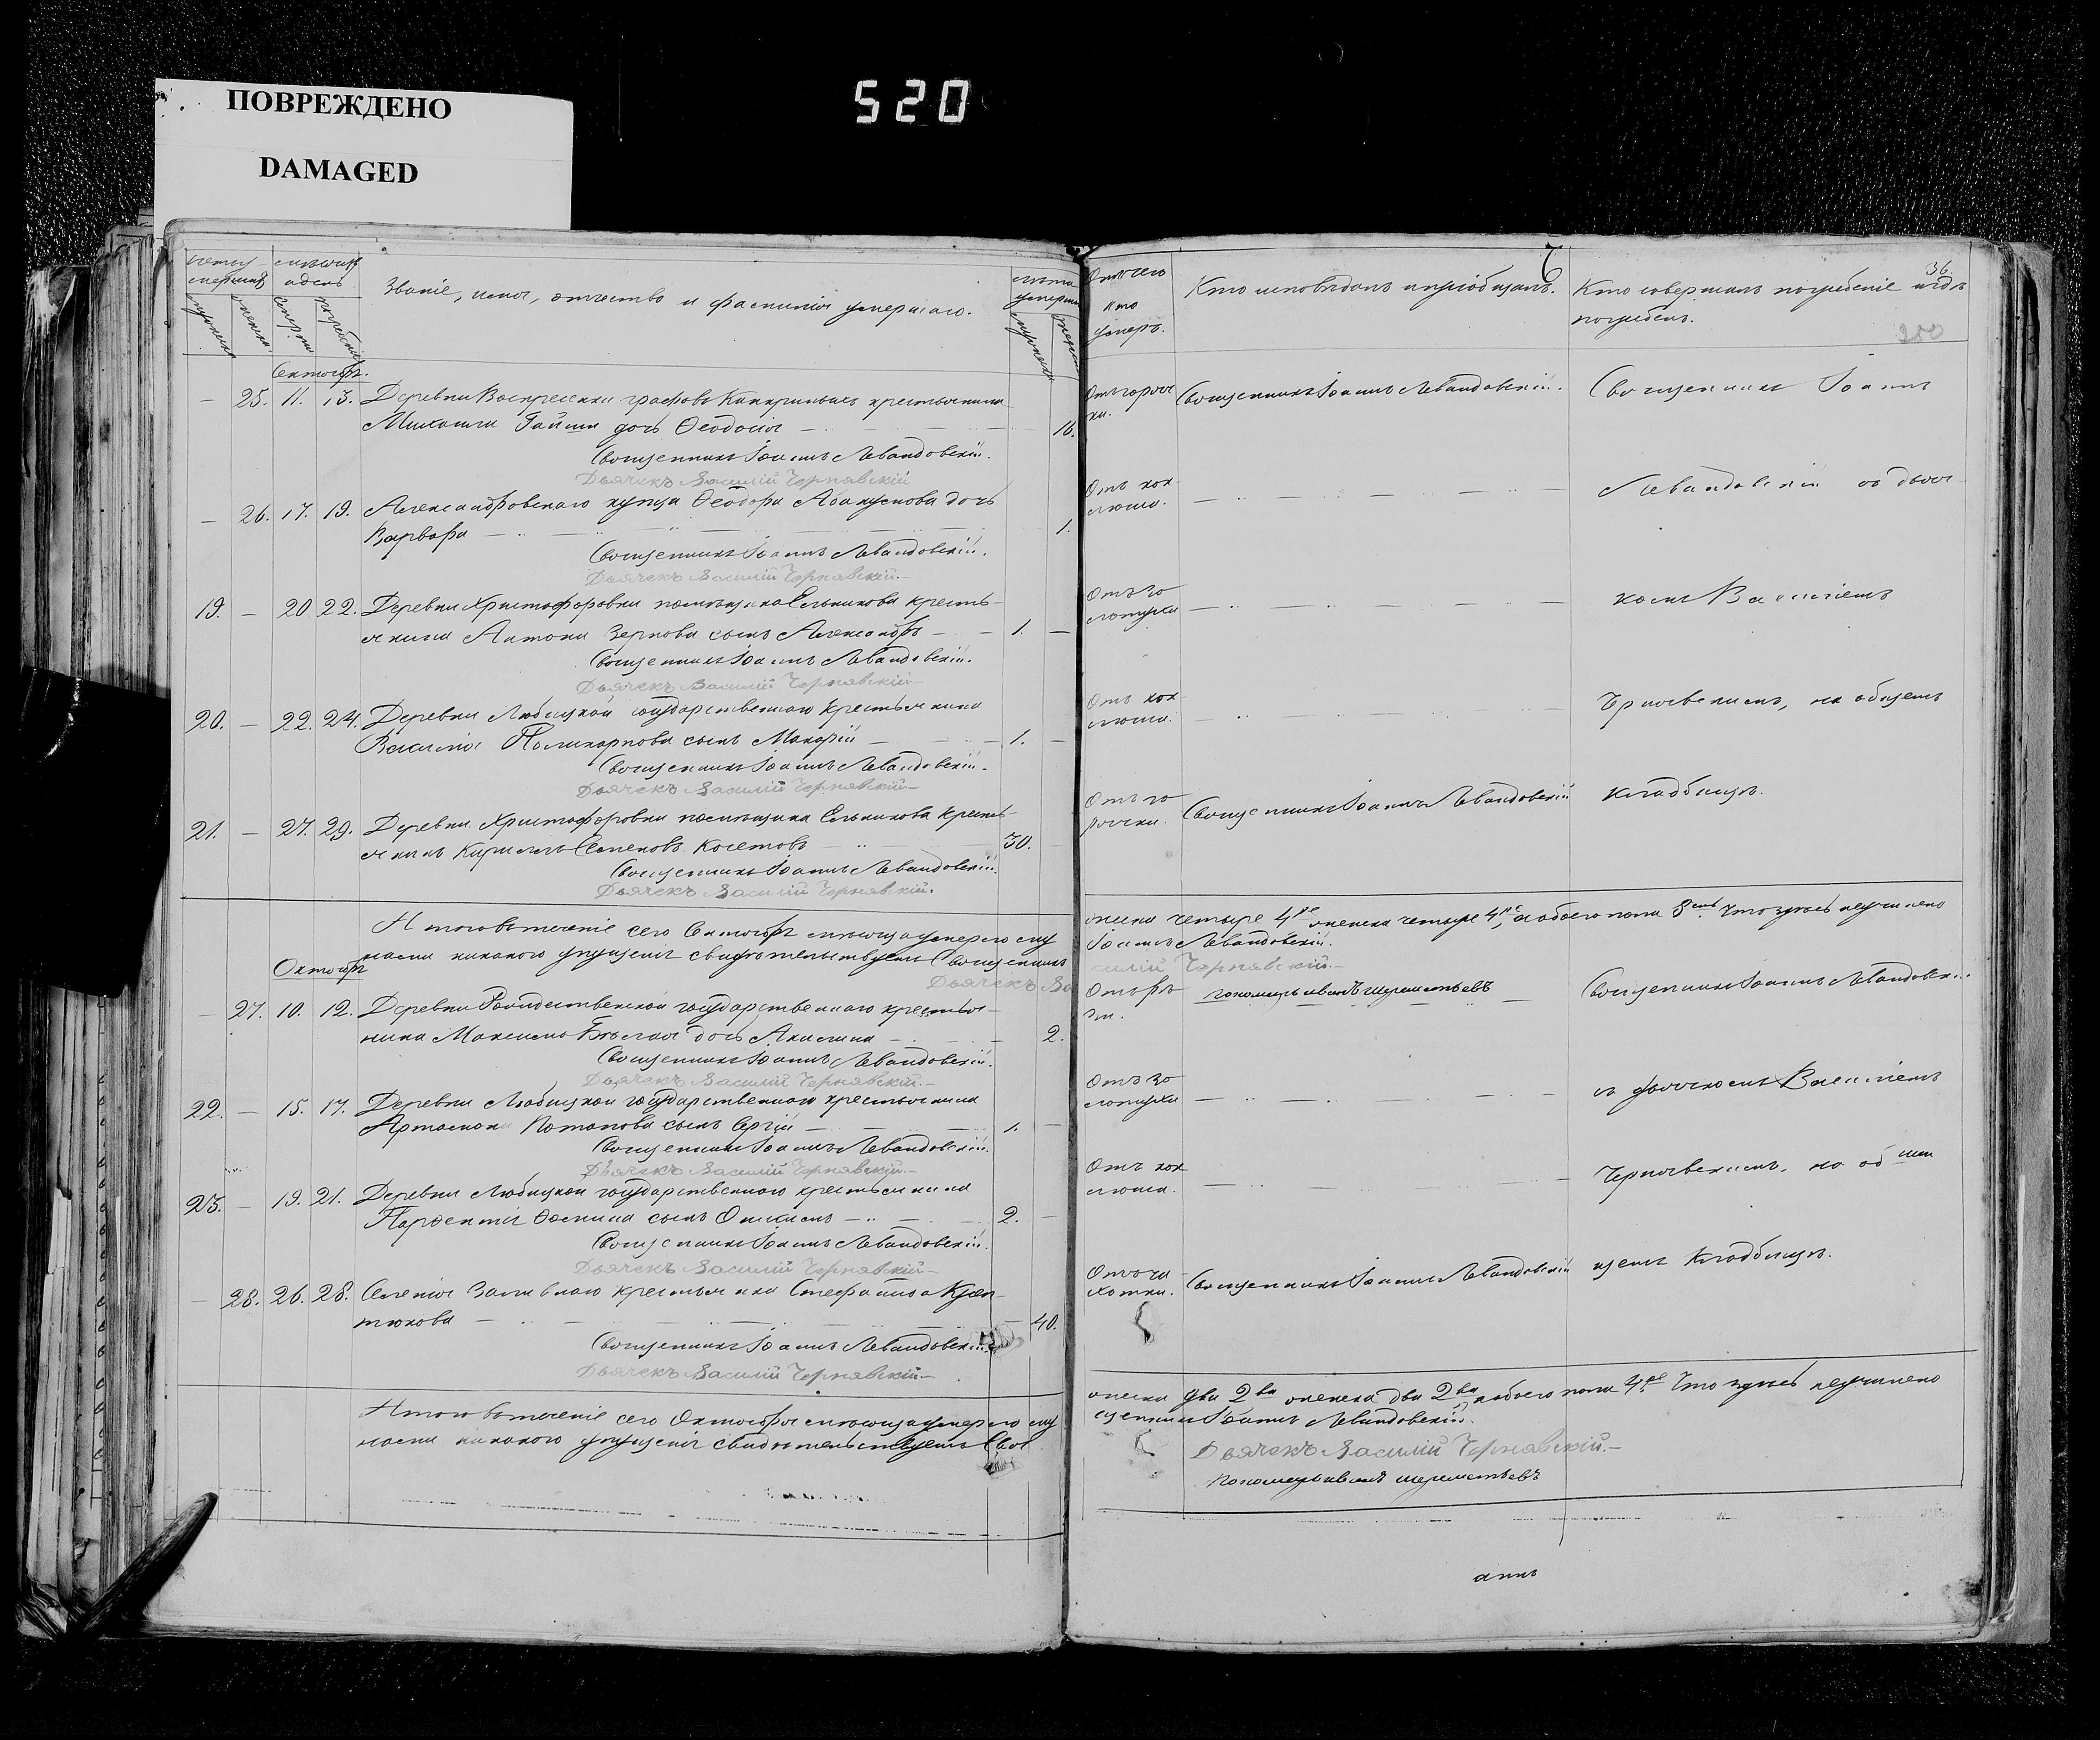 520
ПОВРЕЖДЕНО
DAMAGED
Званіе, имя, отчество и фамилія умершаго.
Отчего
кто
умеръ.
Кто исповѣдалъ и пріобщалъ.
Кто совершалъ погребеніе и гдѣ
погребенъ.
36.
Сентябрь.
— 25. 11. 13. Деревни Воскресенки графовъ Канкриныхъ крестьянина
дочь Феодосія — 16.
Священникъ Іоаннъ Левандовскій.
Дьячекъ Василій Чернявскій
— 26. 17. 19. Александровскаго купца Ѳеодора Абакумова дочь
Варвара — 1.
Священникъ Іоаннъ Левандовскій.
Дьячекъ Василій Чернявскій.—
19. — 20 22. Деревни Христофоровки помѣщика Ельникова кресть-
янина Антона Зернова сынъ Александръ — 1. —
Священникъ Іоаннъ Левандовскій.
Дьячекъ Василій Чернявскій
20. — 22. 24. Деревни Любицкой государственнаго крестьянина
Василія Поликарпова сынъ Макарій — 1. —
Священникъ Іоаннъ Левандовскій.
Дьячекъ Василій Чернявскій.—
21. — 27. 29. Деревни Христофоровки помѣщика Ельникова кресть-
янинъ Кириллъ Семеновъ 30.
Священникъ Іоаннъ Левандовскій.
Дьячекъ Василій Чернявскій.
Итого въ теченіе сего Сентября мѣсяца умерло му
никакого упущенія свидѣтельствуемъ Священникъ
Дьячекъ Ва
Октябрь
— 27. 10. 12. Деревни Рождественской государственнаго крестья-
нина Максима дочь Акилина — 2.
Священникъ Іоаннъ Левандовскій.
Дьячекъ Василій Чернявскій.—
22. — 15. 17. Деревни Любицкой государственнаго крестьянина
Артамона Потапова сынъ Сергій — 1. —
Священникъ Іоаннъ Левандовскій.
Дьячекъ Василій Чернявскій.—
23. — 19. 21. Деревни Любицкой государственнаго крестьянина
Парѳентія Ѳомина сынъ Онисимъ — 2. —
Священникъ Іоаннъ Левандовскій.
Дьячекъ Василій Чернявскій.—
— 28. 26. 28. Селенія Заливнаго крестьянка
— 40.
Священникъ Іоаннъ Левандовскій.
Дьячекъ Василій Чернявскій.—
Итого въ теченіе сего Октября мѣсяца умерло му
никакого упущенія свидѣтельствуемъ Свя
Отъ горяч
ки.
Священникъ Іоаннъ Левандовскій.
Священникъ Іоаннъ
Отъ кок
люша.
Левандовскій съ дьяч
Отъ зо
лотухи
комъ Василіемъ
Отъ кок
люша.
Чернявскимъ, на общемъ
Отъ го
рячки.
Священникъ Іоаннъ Левандовскій
кладбищѣ.
жеска четыре 4ре женска четыре 4ре, а обоего пола 8емь Что здѣсь неучинено
Іоаннъ Левандовскій.
силій Чернявскій.—
Пономарь Иванъ Шереметьевъ
Священникъ Іоаннъ Левандовск
Отъ зо
лотухи
съ дьячкомъ Василіемъ
Отъ кок
люша.
Чернявскимъ, на об
Отъ ча
хотки.
Священникъ Іоаннъ Левандовскій
щемъ Кладбищѣ.
жеска два 2ва женска два 2ва, а обоего пола 4ре Что здѣсь неучинено
щенникъ Іоаннъ Левандовскій.
Дьячекъ Василій Чернявскій.—
Пономарь Иванъ Шереметьевъ